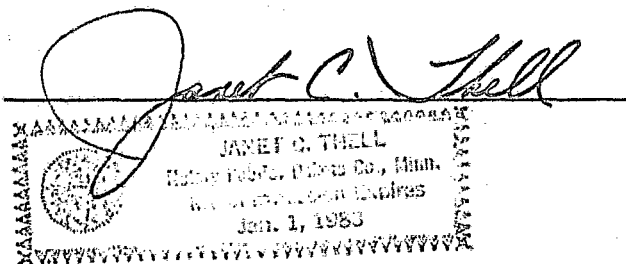 Janet C. Thell
JANET C. THELL
Notary Public, Co., Minn.
Expires
Jan. 1, 1983